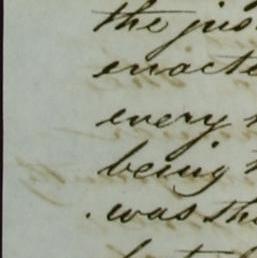 the jus
enacte
every
being
was th